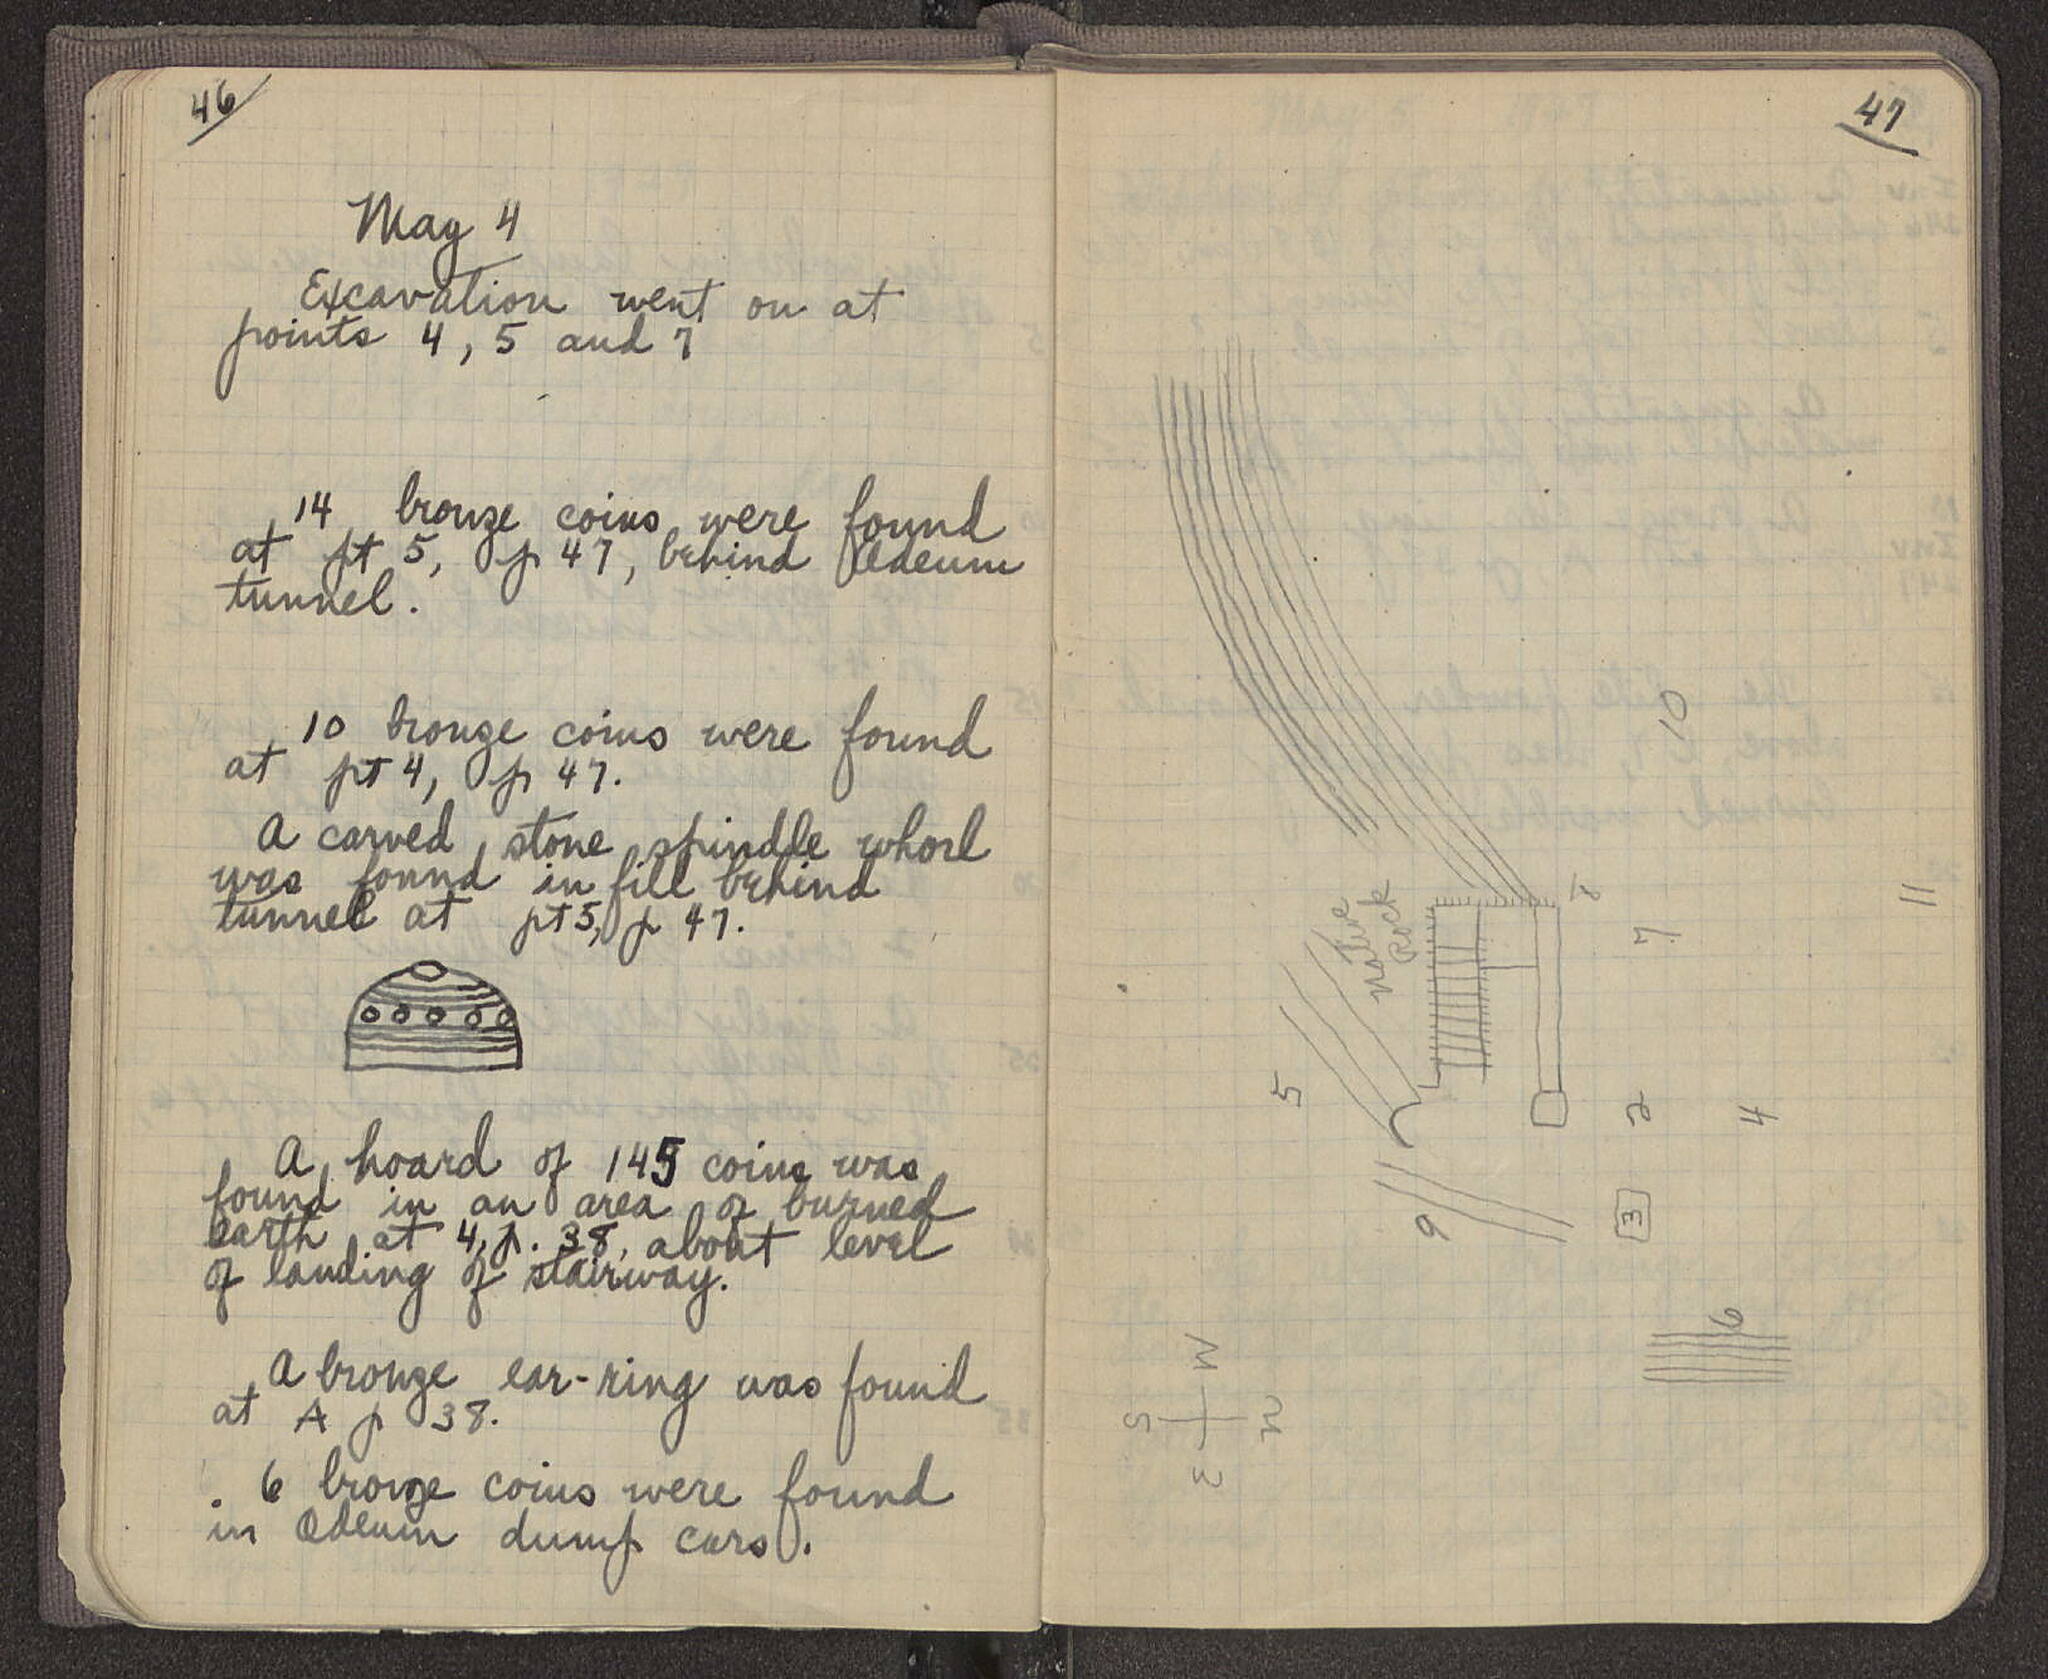 46
May 4
Excavation went on at
points 4, 5 and 7
14 bronze coins were found
at pt 5, p 47, behind Odeum
tunnel.
10 bronze coins were found
at pt 4, p 47.
A carved stone spindle whorl
was found in fill behind
tunnel at pt 5, p 47.
A hoard of 145 coins was
found in an area of burned
earth at 4, p. 38, about level
of landing of stairway.
A bronze ear-ring was found
at A p 38.
6 bronze coins were found
in Odeum dump cars.
47
10
11
8
7
Native
Rock
5
2
4
3
9
6
W
S
N
E